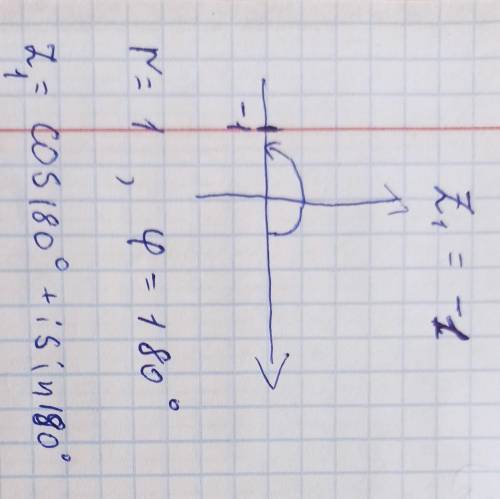 Z₁ = -1
-1
r = 1 , φ = 180°
Z₁ = cos 180° + i sin 180°